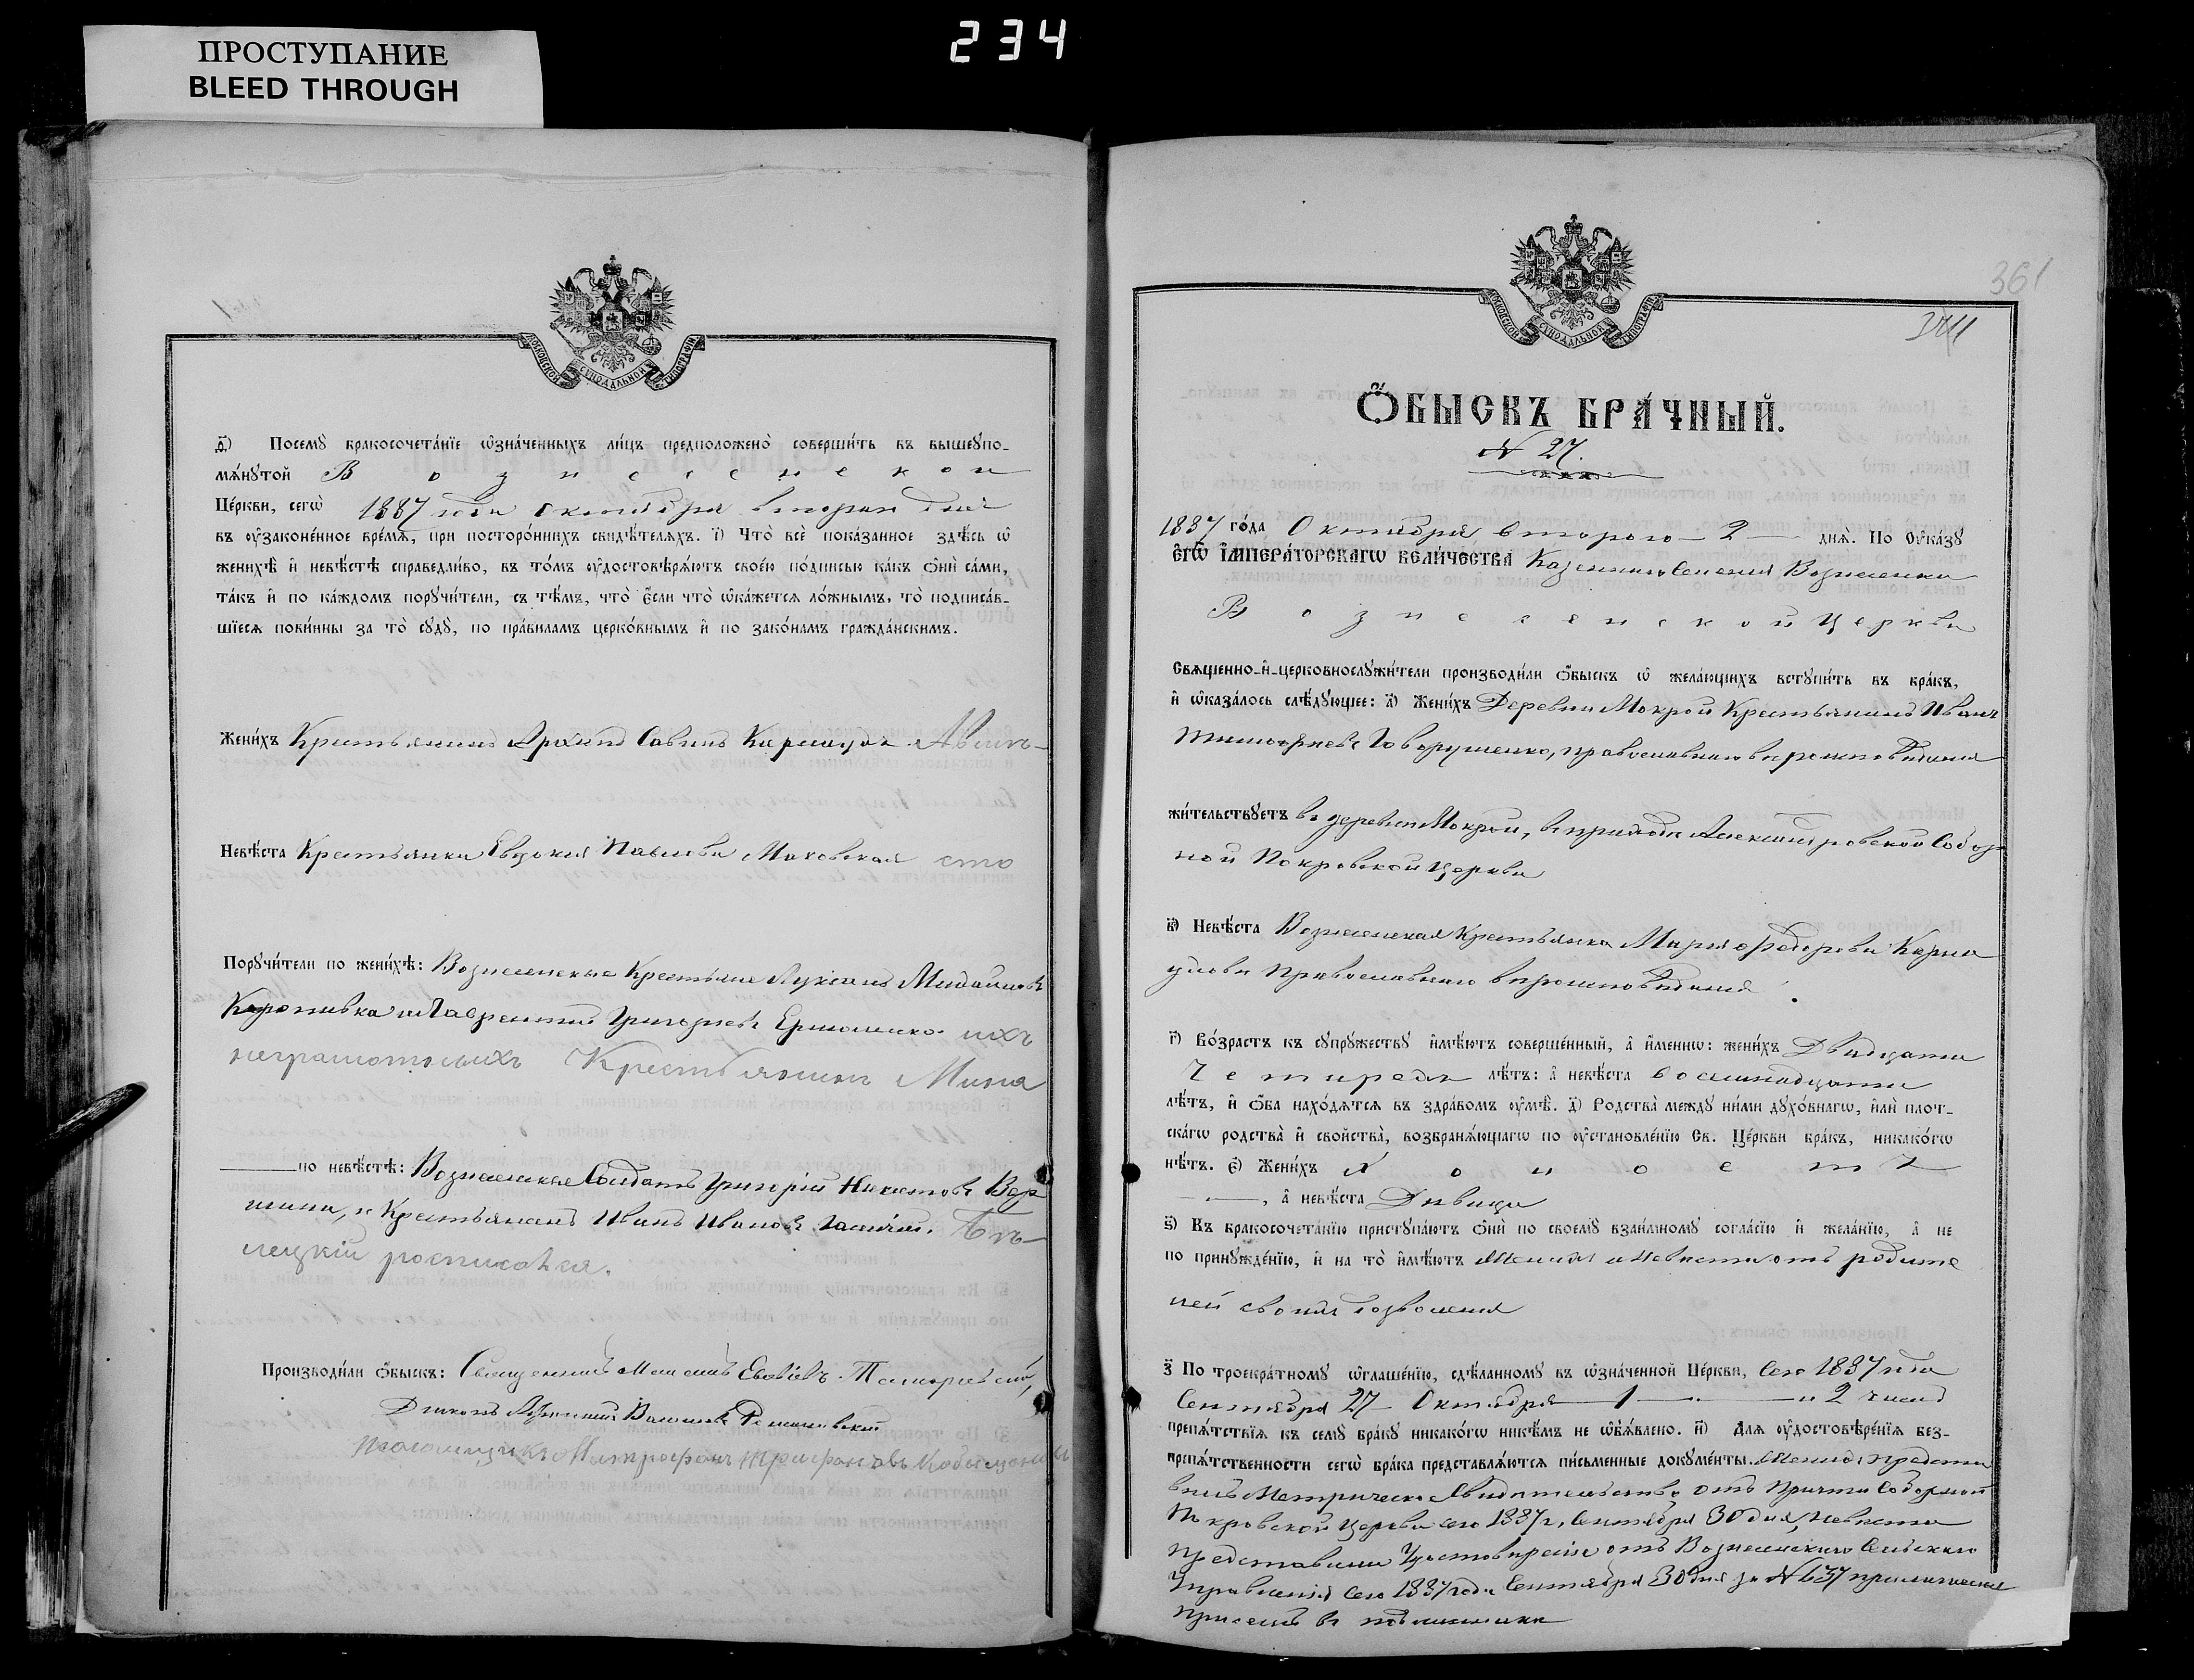 234
ПРОСТУПАНИЕ
BLEED THROUGH
МОСКОВСКОЙ СѴНОДАЛЬНОЙ ТИПОГРАФІИ
ѳ҃) Посемꙋ бракосочета́нїе ѡ҆зна́ченныхъ ли́цъ предположено̀ соверши́ть въ вышеꙋпо-
мѧ́нꙋтой Вознесенской
Це́ркви, сегѡ̀ 1887 года Октября втораго дня
въ ᲂу҆зако́ненное вре́мѧ, при посторо́ннихъ свидѣ́телѧхъ. і҃) Что̀ всѐ пока́занное здѣ́сь ѡ҆
женихѣ̀ и҆ невѣ́стѣ справедли́во, въ то́мъ ᲂу҆достовѣрѧ́ютъ свое́ю по́дписью ка́къ ѻ҆нѝ са́ми,
та́къ и҆ по ка́ждомъ порꙋчи́тели, съ тѣ́мъ, что̀ є҆́сли что̀ ѡ҆ка́жетсѧ ло́жнымъ, то̀ подписа́в-
шїесѧ пови́нны за то̀ сꙋдꙋ̀, по пра́виламъ церко́внымъ и҆ по зако́намъ гражда́нскимъ.
Жени́хъ Крестьянинъ Архипъ Савинъ Карнаухъ
Невѣ́ста Крестьянка Евдокия Павлова Маковская
Порꙋчи́тели по женихѣ̀: Вознесенские Крестьяне Лукианъ Михайловъ
Коропивка и Лаврентий Григорьевъ Ермоленко ихъ
неграмотныхъ Крестьянинъ Мина
по невѣ́стѣ: Вознесенские Солдатъ Григорій Никитовъ Вер
шина, и Крестьянинъ Иванъ Ивановъ
лецкій росписался.
Производи́ли ѻ҆́быскъ: Священникъ
Дьяконъ
Псаломщикъ Митрофанъ Трифоновъ
361
МОСКОВСКОЙ СѴНОДАЛЬНОЙ ТИПОГРАФІИ
Ѻ҆́БЫСКЪ БРА́ЧНЫЙ.
№ 27.
1887 го́да Октября втораго 2 днѧ̀. По Оу҆ка́зꙋ
Є҆ГѠ̀ І҆МПЕРА́ТОРСКАГѠ ВЕЛИ́ЧЕСТВА Казеннаго Селения Вознесенки
Вознесенской Церкви
Свѧщенно-и҆-церковнослꙋжи́тели производи́ли ѻ҆́быскъ ѡ҆ жела́ющихъ встꙋпи́ть въ бра́къ,
и҆ ѡ҆каза́лось слѣ́дꙋющее: а҃) Жени́хъ Деревни Мокрой Крестьянинъ Иванъ
Тимофеевъ Говорущенко, православнаго вероисповедания
жи́тельствꙋетъ въ деревни Мокрой, въ приходе Александровской Собор
ной Покровской Церкви
в҃) Невѣ́ста Вознесенская Крестьянка Мария Федорова Карна
ухова Православнаго вероисповедания
г҃) Во́зрастъ къ сꙋпрꙋ́жествꙋ и҆мѣ́ютъ соверше́нный, а҆ и҆́меннѡ: жени́хъ Двадцати
Четырехъ лѣ́тъ: а҆ невѣ́ста восемнадцати
лѣ́тъ, и҆ ѻ҆́ба нахо́дѧтсѧ въ здра́вомъ ᲂу҆мѣ̀. д҃) Родства̀ междꙋ ни́ми дꙋхо́внагѡ, и҆лѝ плот-
ска́гѡ родства̀ и҆ свойства̀, возбранѧ́ющагѡ по ᲂу҆становле́нїю Св. Це́ркви бра́къ, никако́гѡ
нѣ́тъ. є҃) Жени́хъ Холостъ
, а҆ невѣ́ста Девица
ѕ҃) Къ бракосочета́нїю пристꙋпа́ютъ ѻ҆нѝ по своемꙋ̀ взаи́мномꙋ согла́сїю и҆ жела́нїю, а҆ не
по принꙋжде́нїю, и҆ на то̀ и҆мѣ́ютъ Жених и Невеста отъ родите
лей своихъ дозволения
з҃ По троекра́тномꙋ ѡ҆глаше́нїю, сдѣ́ланномꙋ въ ѡ҆зна́ченной Це́ркви, Сего 1887 года
Сентября 27 Октября 1 и 2 числъ
препѧ́тствїѧ къ семꙋ̀ бра́кꙋ никако́гѡ никѣ́мъ не ѡ҆б̾ѧ́влено. и҃) Длѧ ᲂу҆достовѣре́нїѧ без-
препѧ́тственности сегѡ̀ бра́ка представлѧ́ютсѧ пи́сьменные докꙋме́нты. Жених предста
вилъ Метрическо Свидетельство отъ Причта Соборной
Покровской Церкви сего 1887 г. Сентября 30 дня, Невеста
представила Удостоверение отъ Вознесенского Сельского
Управления Сего 1887 года Сентября 30 дня за № 637